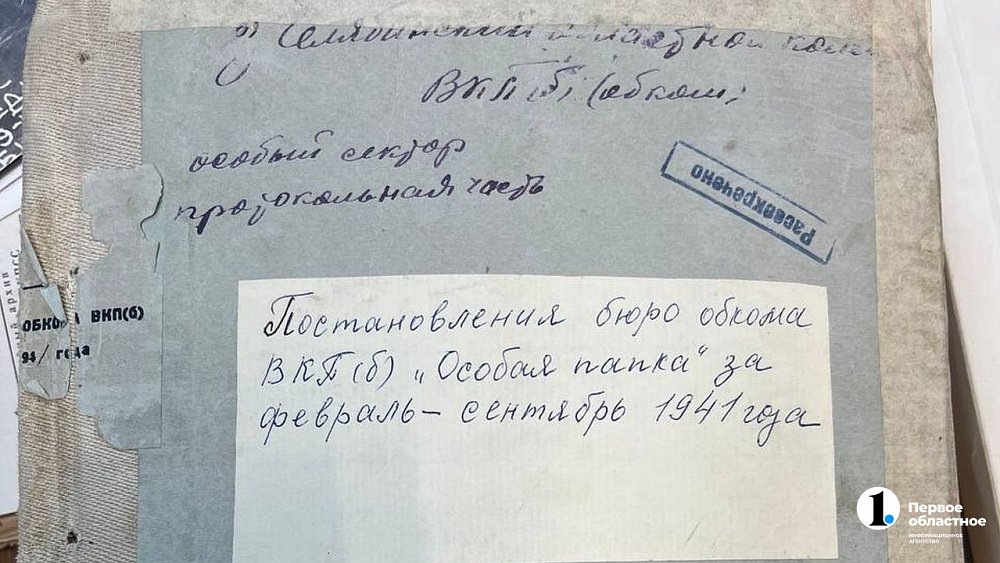 Челябинский областной ком
ВКП(б) (обком)
особый сектор
протокольная часть
Рассекречено
архив
КПСС
ОБКОМА ВКП(б)
941 года
Постановления бюро обкома
ВКП(б) „Особая папка“ за
февраль – сентябрь 1941 года
1.
Первое
областное
ИНФОРМАЦИОННОЕ
АГЕНТСТВО